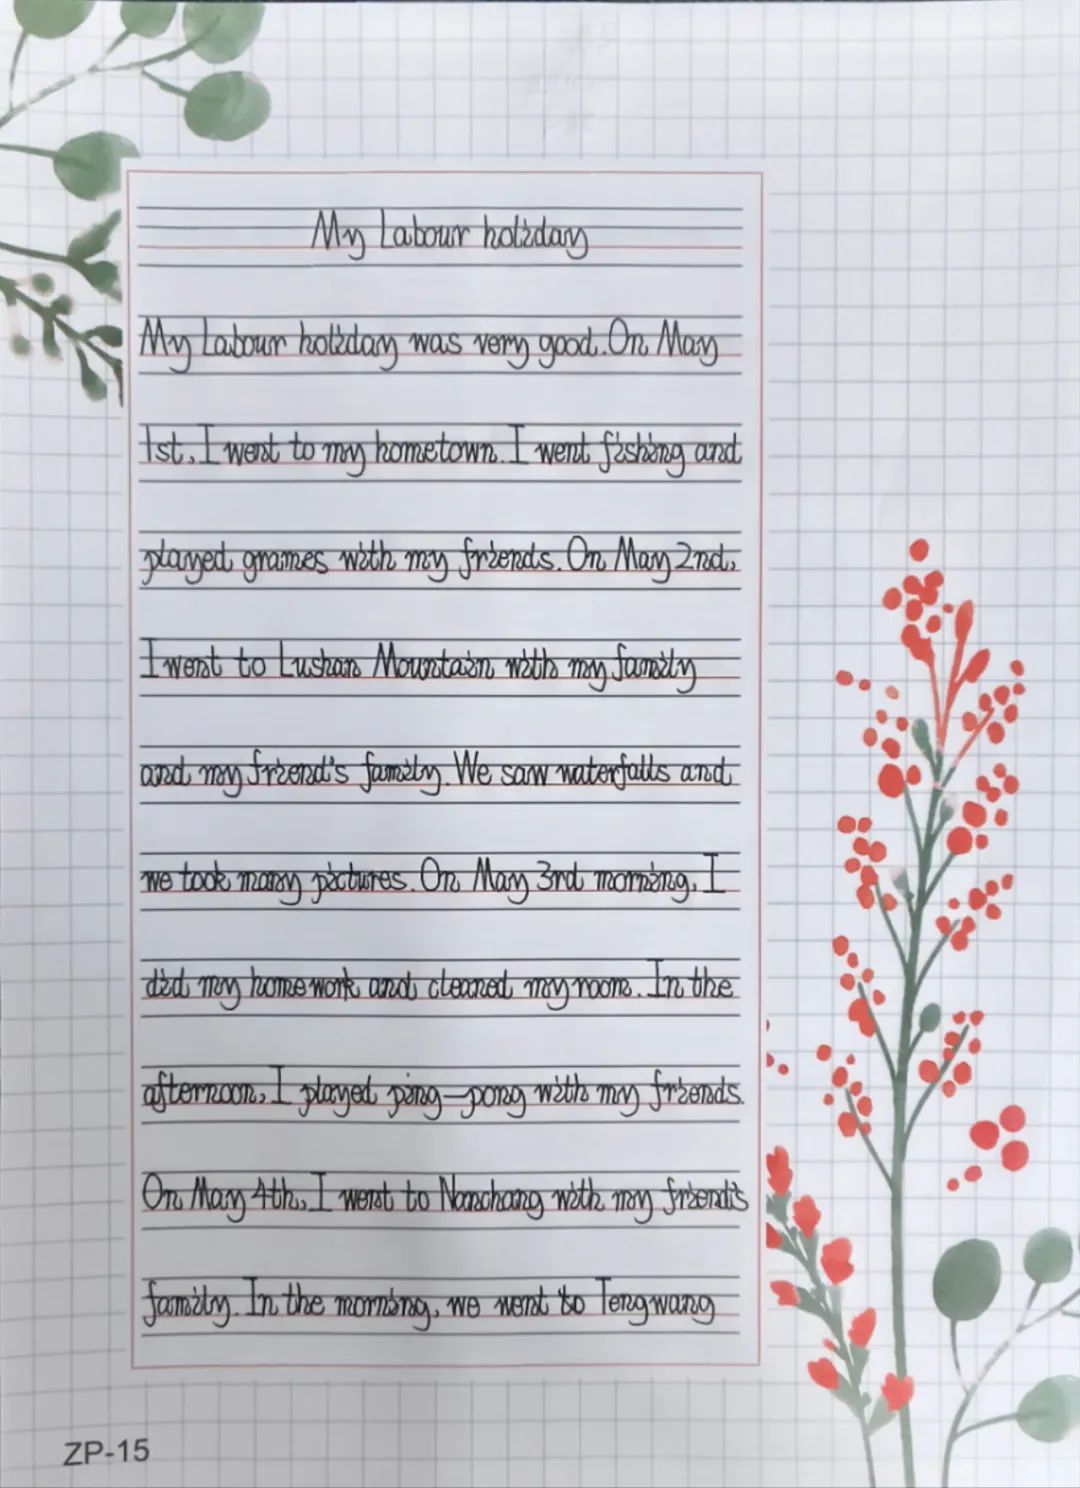 My Labour holiday
My Labour holiday was very good. On May
1st, I went to my hometown. I went fishing and
played grames with my friends. On May 2nd,
I went to Lushan Mountain with my family
and my friend's family. We saw waterfalls and
we took many pictures. On May 3rd morning, I
did my homework and cleaned my room. In the
afternoon, I played ping-pong with my friends.
On May 4th, I went to Nanchang with my friend's
family. In the morning, we went to Tengwang
ZP-15